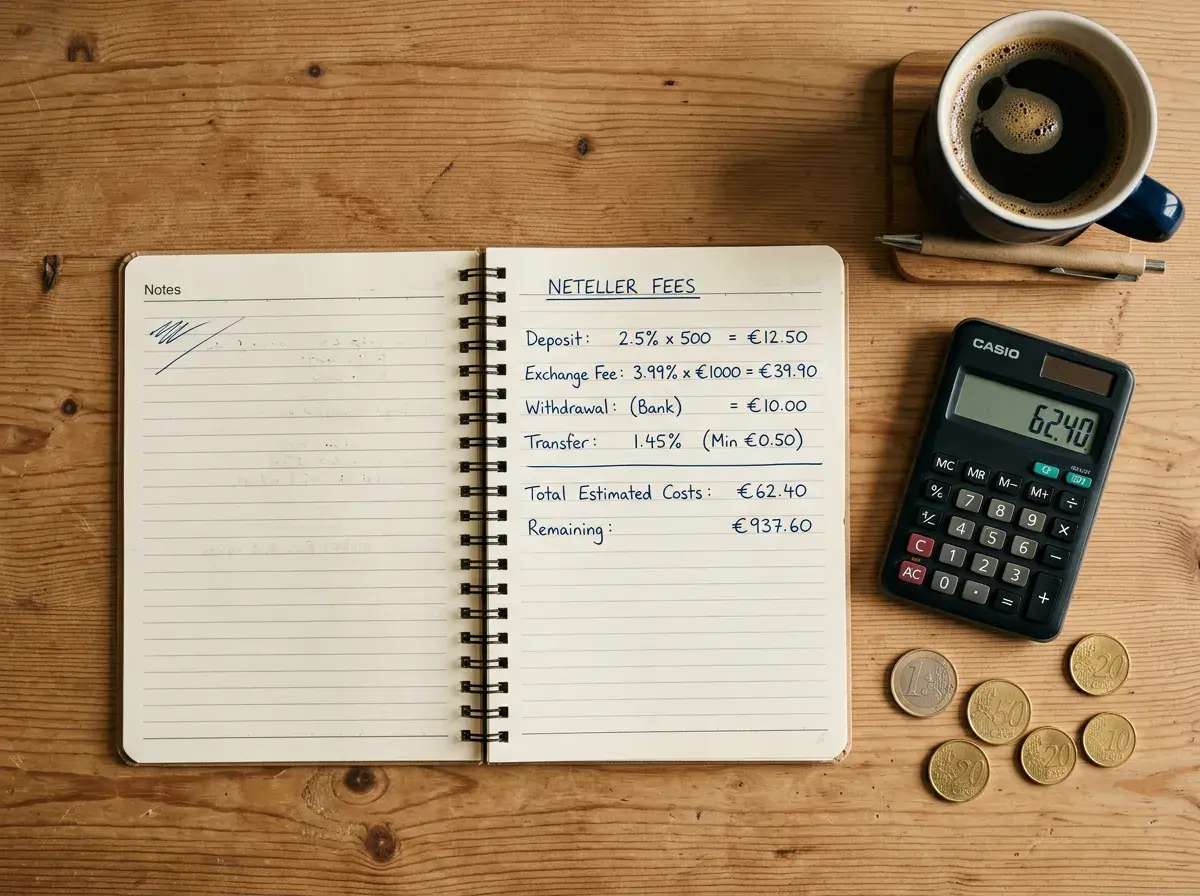 Notes
NETELLER FEES
Deposit: 2.5% x 500 = €12.50
Exchange Fee: 3.99% x €1000 = €39.90
Withdrawal: (Bank) = €10.00
Transfer: 1.45% (Min €0.50)
Total Estimated Costs: €62.40
Remaining: €937.60
CASIO
62.40
MC MR M- M+ ÷
% 7 8 9 ×
4 5 6 −
C 1 2 3 +
AC 0 . =
1
50
20
20
20
10